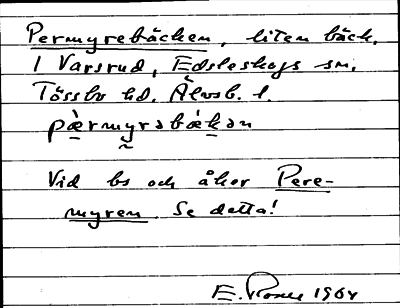 Permyrebäcken, liten bäck.
I Varsrud, Edsleskogs sn.
Tössbo hd. Älvsb. l.
pæ̀rmyrəbǽkən
Vid bs och åker Pere-
myren. Se detta!
E. 1964